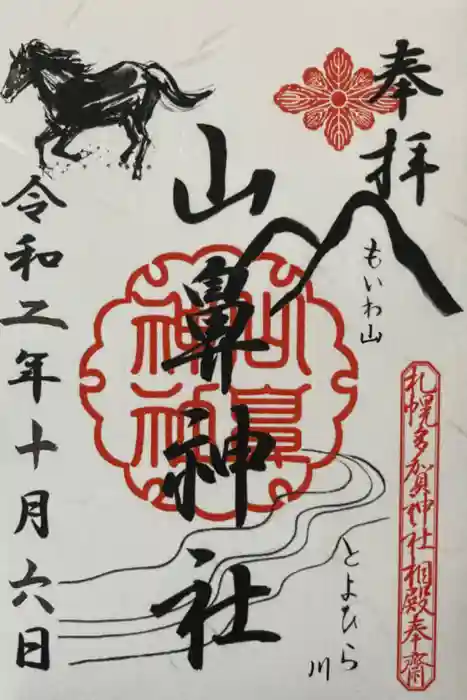 奉拝
もいわ山
札幌多賀神社相殿奉齋
山鼻神社
山鼻神社
とよひら川
令和二年十月六日